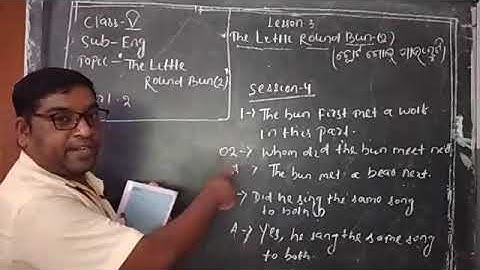 Class-V
Sub-Eng
Topic-"The Little
Round Bun(2)
Lesson 3
The Little Round Bun-(2)
Session-4
The bun first met a wolf
in this part.
02→ Whom did the bun meet next
The bun met a bear next.
Did he sing the same song
to both
A→ Yes, he sang the same song
to both.